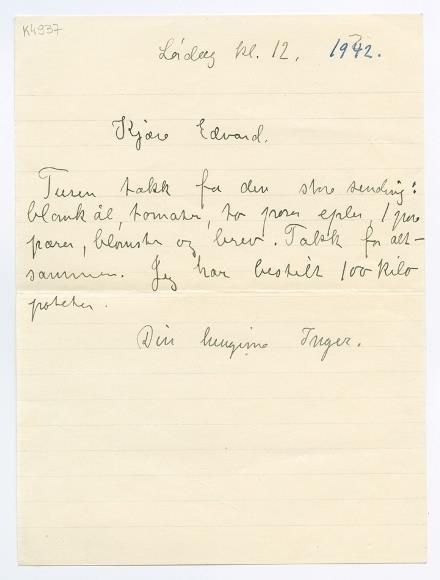 K4937
Lördag kl. 12. 1942.
Kjære Edvard.
Tusen takk for den store sending:
blomkål, tomater, to poser epler, 1 pose
pærer, blomster og brev. Takk for alt-
sammen. Jeg har bestilt 100 kilo
poteter.
Din hengivne Inger.